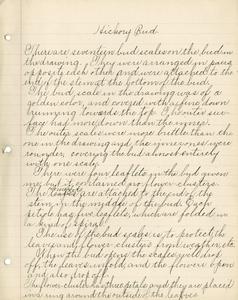 Hickory Bud
There are seventeen bud scales on the bud in
the drawing. They were arranged in pairs
opposite each other and were attached to the
end of the stem at the bottom of the bud.
The bud scale in the drawing was of a
golden color, and covered with a fine down
running towards the top. The outer sur-
face had more down than the inner.
The outer scales were more brittle than the
one in the drawing and the inner ones were
rounder, covering the bud almost entirely
with one scale.
There were four leaflets in the bud given
me, but it contained no flower clusters.
The leaves are attached to the side of the
stem, in the middle of the bud. Each
petiole has five leaflets, which are folded in
a kind of spiral.
The use of the bud scales is to protect the
leaves and flower clusters from weather, etc.
When the bud opens the scales will drop
off, the leaves unfold, and the flowers open
and also drop off.
The flower cluster has three petals and they are placed
in a ring around the outside of the leaves